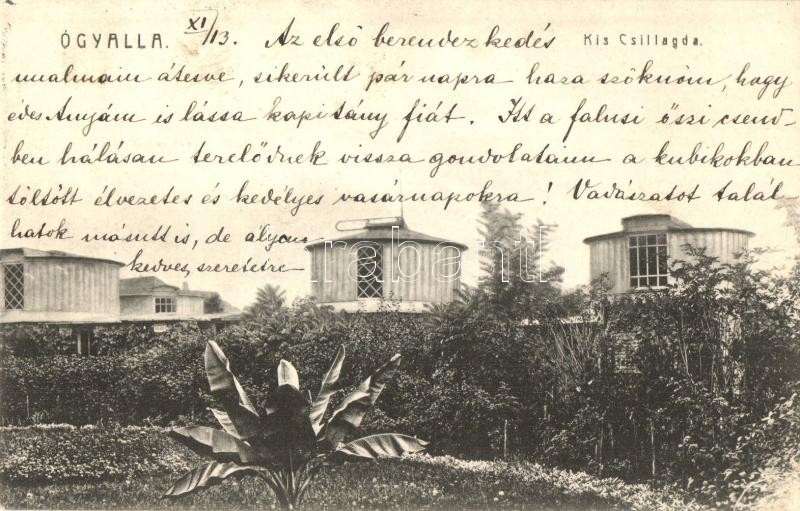 ÓGYALLA. XI/13. Az első berendezkedés Kis Csillagda.
unalmain átesve, sikerült pár napra haza szöknöm, hogy
édes Anyám is lássa kapitány fiát. Itt a falusi őszi csend-
ben hálásan terelődnek vissza gondolataim a kubikokban
töltött élvezetes és kedélyes vasárnapokra! Vadászatot talál-
hatok másutt is, de olyan
kedves szeretetre
darabanth